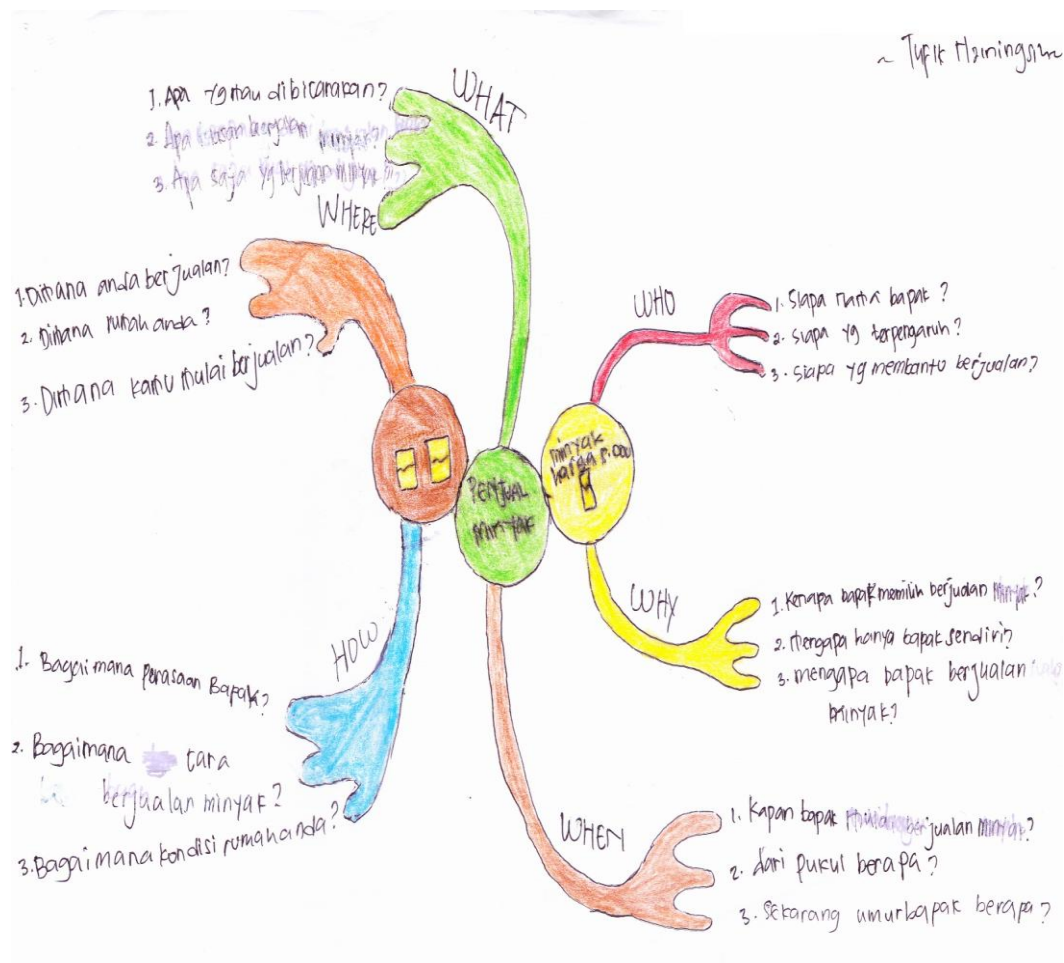 ~ Tyfik
WHAT
1. Apa yg mau dibicarakan?
2. Apa berjualan minyak?
3. Apa saja yg berjualan minyak
WHERE
1. Dimana anda berjualan?
2. Dimana rumah anda?
3. Dimana kamu mulai berjualan?
WHO
1. Siapa nama bapak?
2. Siapa yg terpengaruh?
3. Siapa yg membantu berjualan?
minyak
harga 5.000
PENJUAL
MINYAK
WHY
1. Kenapa bapak memilih berjualan minyak?
2. Mengapa hanya bapak sendiri?
3. mengapa bapak berjualan
minyak?
HOW
1. Bagaimana perasaan Bapak?
2. Bagaimana cara
berjualan minyak?
3. Bagaimana kondisi rumah anda?
WHEN
1. Kapan bapak berjualan minyak?
2. dari pukul berapa?
3. Sekarang umur bapak berapa?